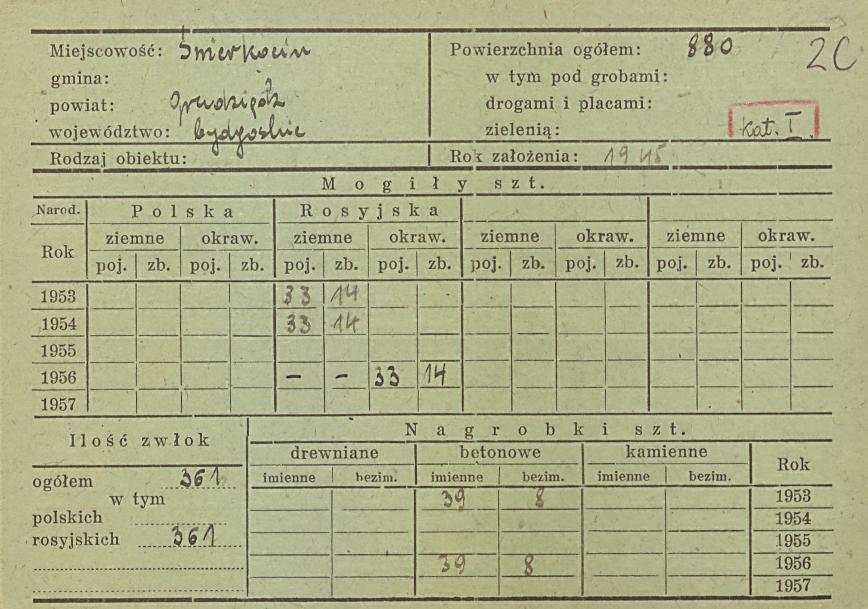 Miejscowość: Świerkocin Powierzchnia ogółem: 880 2C
gmina: w tym pod grobami:
powiat: Grudziądz drogami i placami:
województwo: bydgoskie zielenią: kat. I.
Rodzaj obiektu: Rok założenia: 1945
Mogiły szt.
Narod. Polska Rosyjska
Rok ziemne okraw. ziemne okraw. ziemne okraw. ziemne okraw.
poj. zb. poj. zb. poj. zb. poj. zb. poj. zb. poj. zb. poj. zb. poj. zb.
1953 33 14
1954 33 14
1955
1956 – – 33 14
1957
Ilość zwłok Nagrobki szt.
drewniane betonowe kamienne Rok
ogółem 361 imienne bezim. imienne bezim. imienne bezim.
w tym 39 8 1953
polskich 1954
rosyjskich 361 1955
39 8 1956
1957